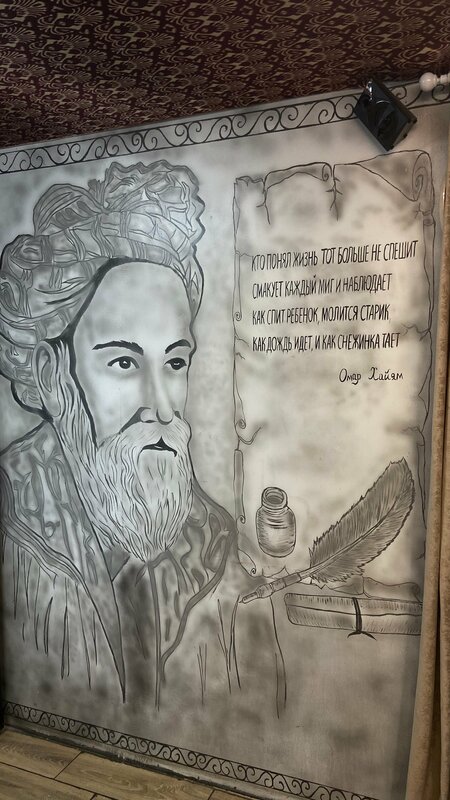 КТО ПОНЯЛ ЖИЗНЬ ТОТ БОЛЬШЕ НЕ СПЕШИТ
СМАКУЕТ КАЖДЫЙ МИГ И НАБЛЮДАЕТ
КАК СПИТ РЕБЕНОК, МОЛИТСЯ СТАРИК
КАК ДОЖДЬ ИДЕТ, И КАК СНЕЖИНКА ТАЕТ
Омар Хайям